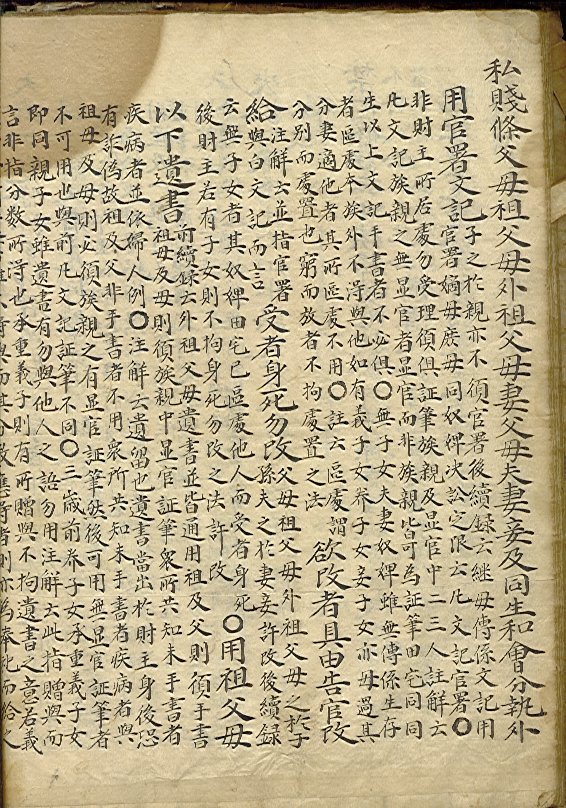 私賤條父母祖父母外祖父母妻父母夫妻妾及同生和會分執外
用官署文記
子之於親亦不須官署後續錄云継母傳係文記用
官署嫡母庶母同奴婢决訟定限云凡文記官署〇
非財主所居處勿受理須俱証筆族親及显官中二三人註解云
凡文記族親之無显官者显官而非族親皆可為証筆田宅同同
生以上文記手書者不必俱〇無子女夫妻奴婢雖無傳係生存
者區處本族外不得與他如有義子女养子女妾子女亦毋過其
分妻適他者其所區處不用〇註云區處謂
分別而處置也窮而放者不拘處置之法
欲改者具由告官改
給
注解云並指官署
與白文記而言
受者身死勿改
父母祖父母外祖父母之於子
孫夫之於妻妾許改後續錄
云無子女者其奴婢田宅已區處他人而受者身死
後財主若有子女則不拘身死勿改之法許改
〇用祖父母
以下遺書
所續錄云外祖父母遺書並皆通用祖及父則須手書
祖母及母則須族親中显官証筆衆所共知未手書者
疾病者並依婦人例〇注解云遺留也遺書當出於財主身後恐
有詐偽故祖及父非手書者不用衆所共知未手書者疾病者與
祖母及母則必須族親之有显官証筆然後可用無显官証筆者
不可用也與前凡文記証筆不同〇三歲前养子女承重義子女
即同親子女雖遺書有勿與他人之語勿用注解云此指贈與而
言非指分数所得也承重義子則有所贈與不拘遺書之意若義